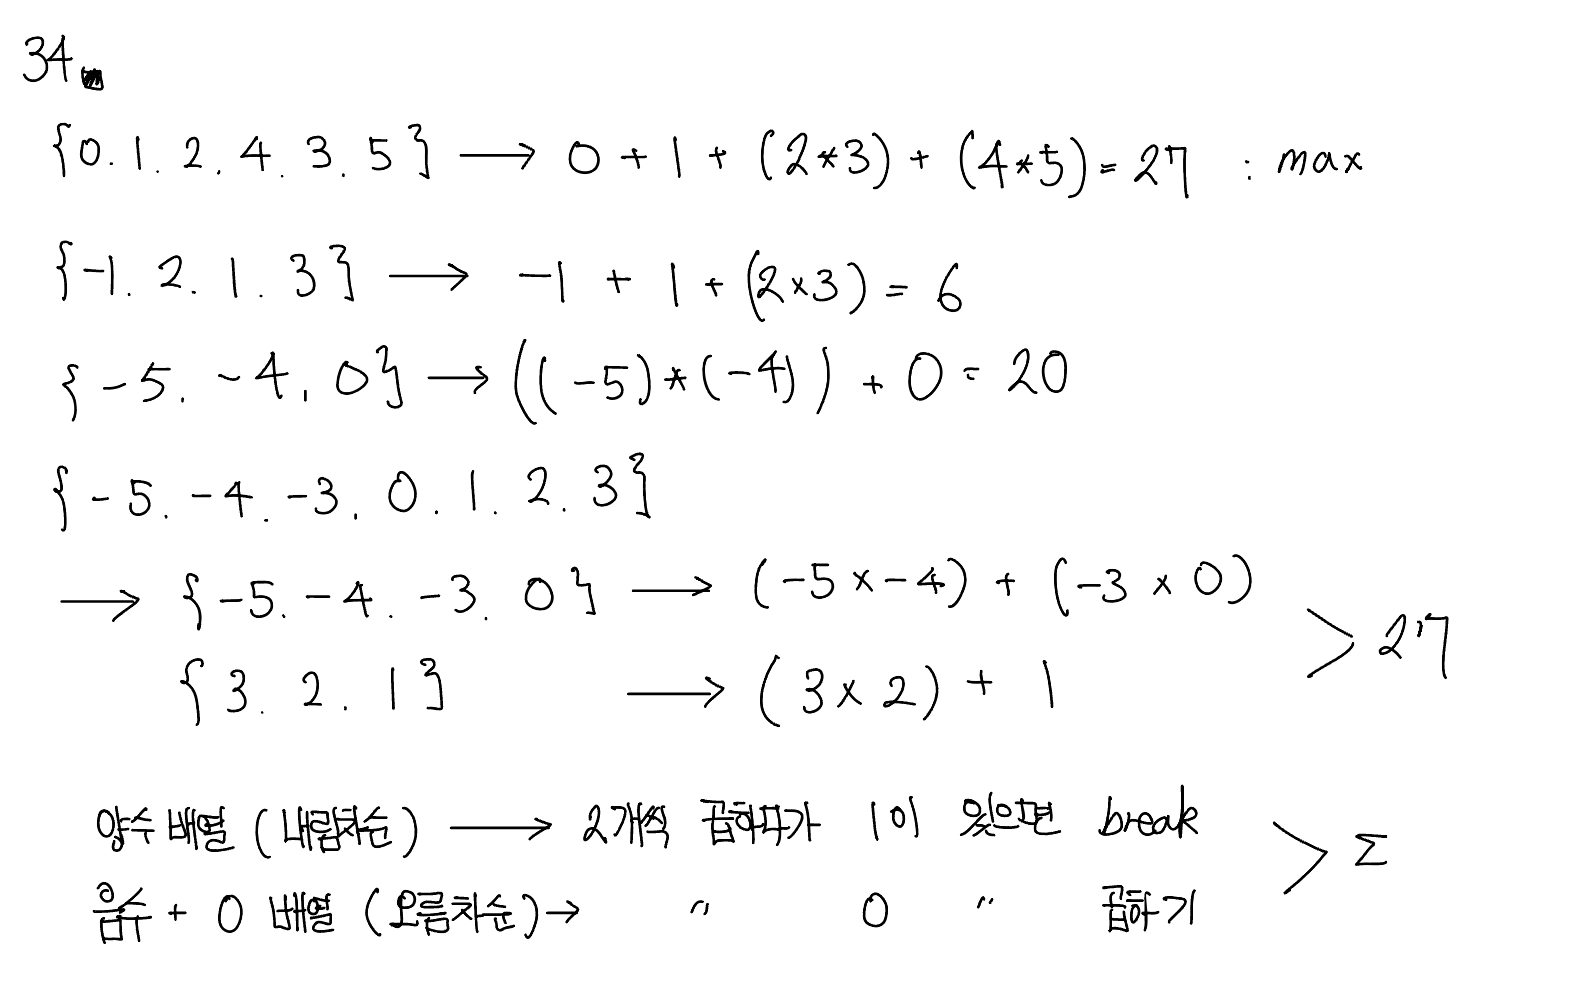 34.
{0. 1. 2. 4. 3. 5} → 0 + 1 + (2*3) + (4*5) = 27 : max
{-1. 2. 1. 3} → -1 + 1 + (2×3) = 6
{-5. -4. 0} → ((-5)*(-4)) + 0 = 20
{-5. -4. -3. 0. 1. 2. 3}
→ {-5. -4. -3. 0} → (-5 × -4) + (-3 × 0)
> 27
{3. 2. 1} → (3 × 2) + 1
양수 배열 (내림차순) → 2개씩 곱하다가 1이 있으면 break
> Σ
음수 + 0 배열 (오름차순) → 〃 0 〃 곱하기